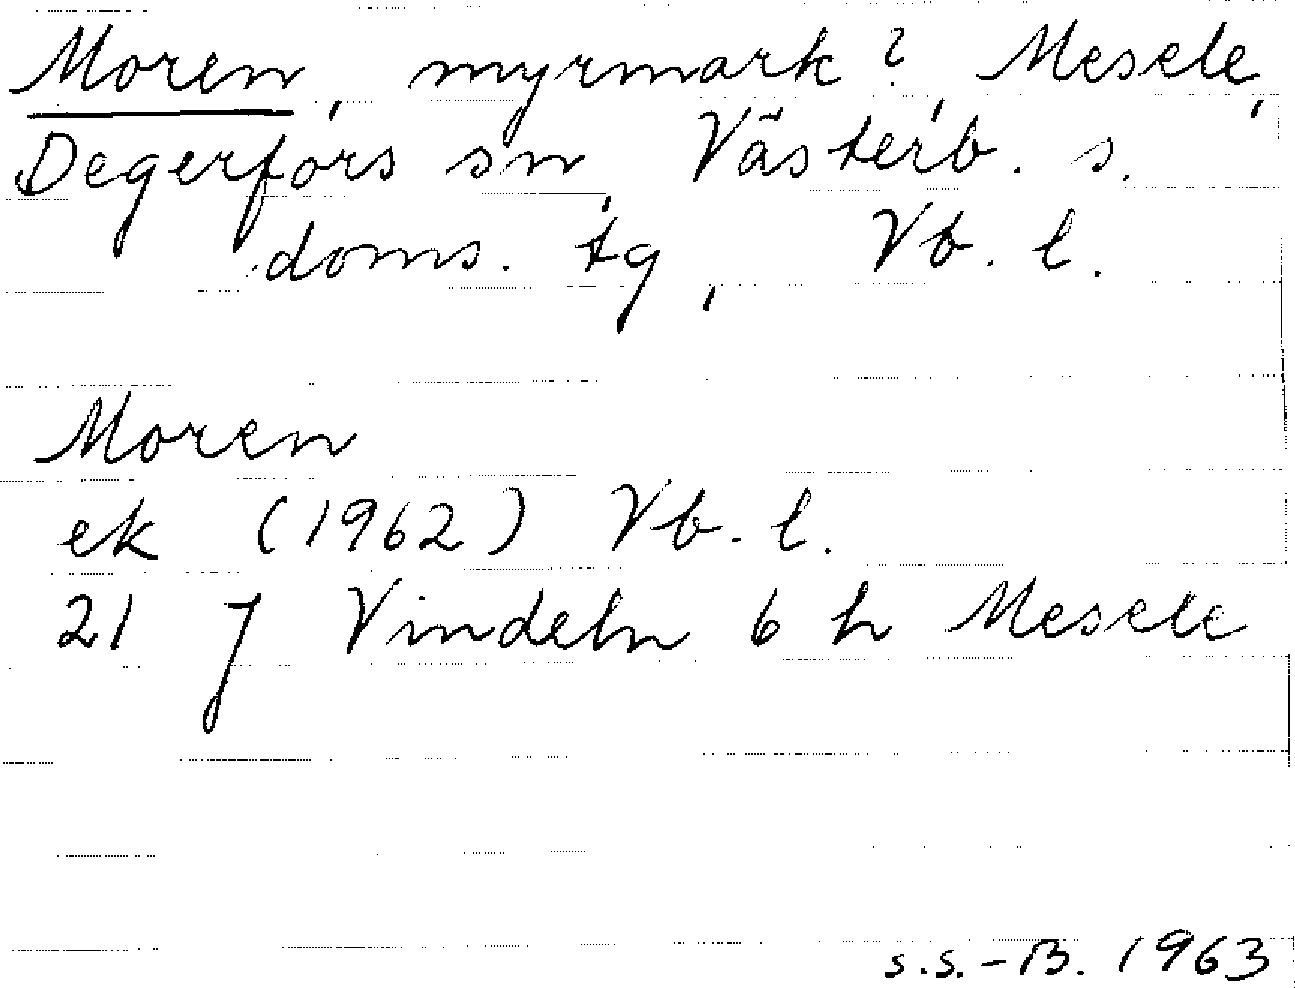 Moren, myrmark?, Mesele,
Degerfors sn, Västerb. s.
doms. tg, Vb. l.
Moren
ek (1962) Vb. l.
21 J Vindeln 6 h Mesele
s.s.-B. 1963